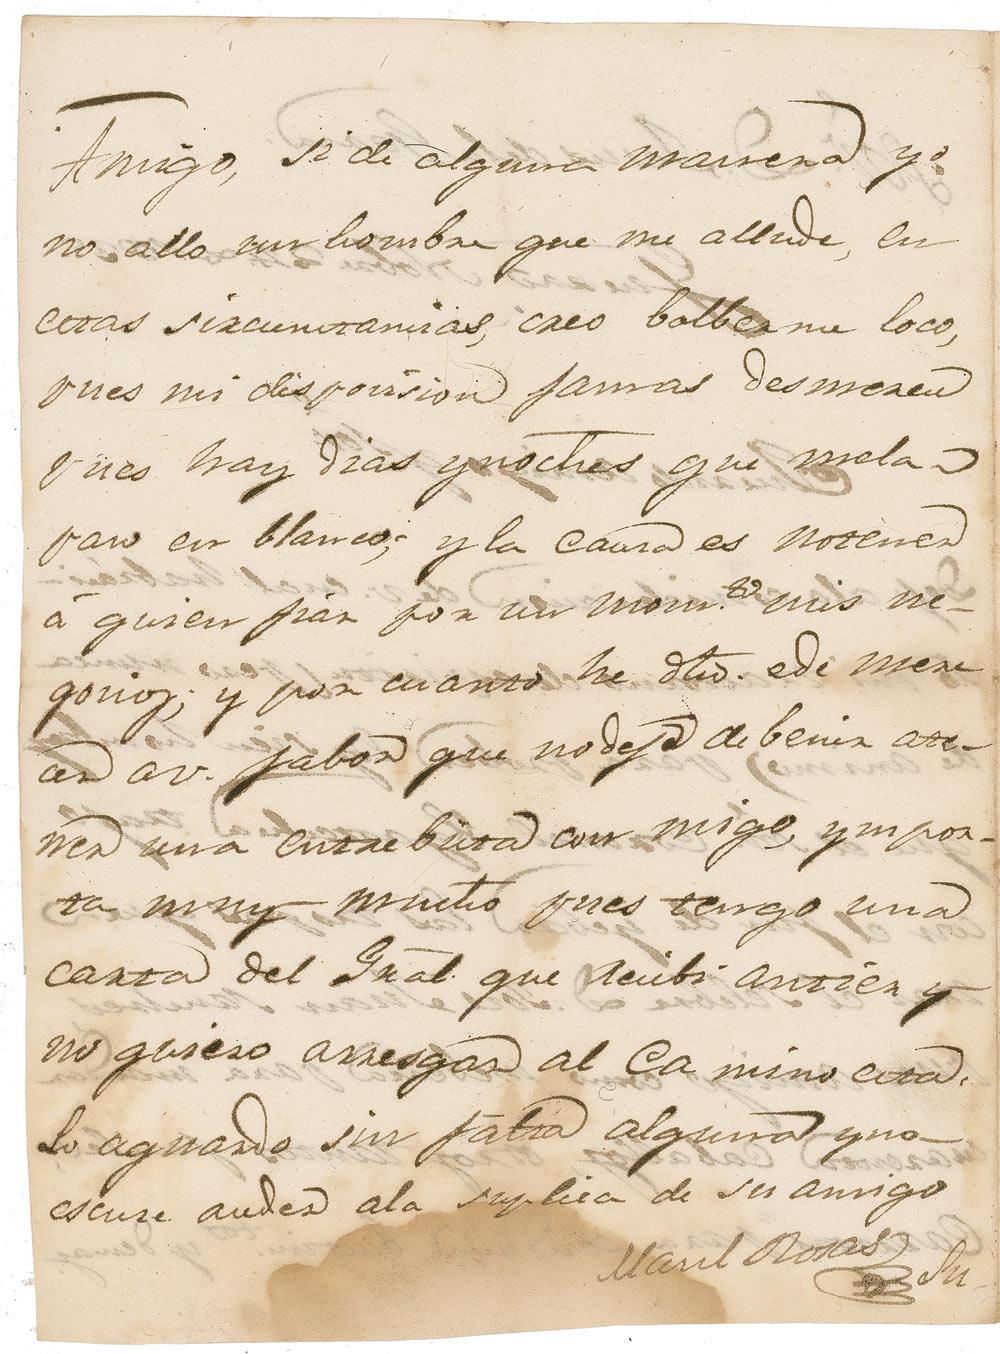 Amigo, si de alguna manera yo
no allo un hombre que me allude, en
estas sircunstansias, creo bolberme loco,
pues mi disposision jamas desmerese
pues hay dias y noches que mela
paso en blanco; y la causa es notener
á quien fiar por un mom.to mis ne-
gosios; y por cuanto he dho. ede mere
cer a v. fabor que no deje de benir ate-
ner una entrebista con migo, ympor-
ta muy mucho pues tengo una
carta del Gral. que resibi antier y
no quiero arresgar al Ca mino esta.
Lo aguardo sin falta alguna y no
escuse aseder ala suplica de su amigo
Manl Rosas
Su-